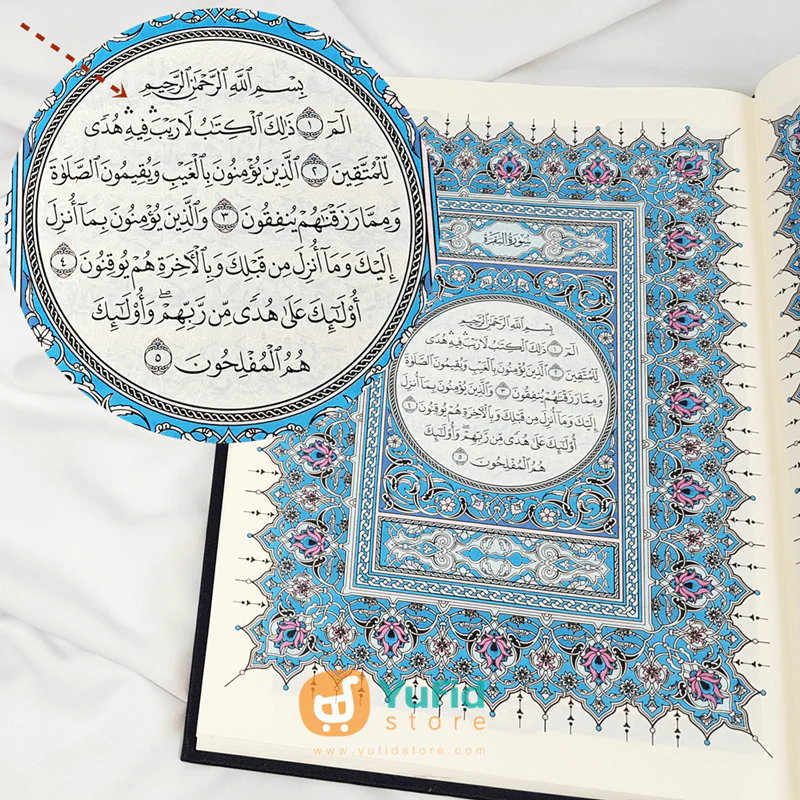 بِسْمِ ٱللَّهِ ٱلرَّحْمَٰنِ ٱلرَّحِيمِ
الٓمٓ ١ ذَٰلِكَ ٱلْكِتَٰبُ لَا رَيْبَ ۛ فِيهِ ۛ هُدًى
لِّلْمُتَّقِينَ ٢ ٱلَّذِينَ يُؤْمِنُونَ بِٱلْغَيْبِ وَيُقِيمُونَ ٱلصَّلَوٰةَ
وَمِمَّا رَزَقْنَٰهُمْ يُنفِقُونَ ٣ وَٱلَّذِينَ يُؤْمِنُونَ بِمَآ أُنزِلَ
إِلَيْكَ وَمَآ أُنزِلَ مِن قَبْلِكَ وَبِٱلْءَاخِرَةِ هُمْ يُوقِنُونَ ٤
أُو۟لَٰٓئِكَ عَلَىٰ هُدًى مِّن رَّبِّهِمْ ۖ وَأُو۟لَٰٓئِكَ
هُمُ ٱلْمُفْلِحُونَ ٥
سُورَةُ البَقَرَةِ
بِسْمِ ٱللَّهِ ٱلرَّحْمَٰنِ ٱلرَّحِيمِ
الٓمٓ ١ ذَٰلِكَ ٱلْكِتَٰبُ لَا رَيْبَ ۛ فِيهِ ۛ هُدًى
لِّلْمُتَّقِينَ ٢ ٱلَّذِينَ يُؤْمِنُونَ بِٱلْغَيْبِ وَيُقِيمُونَ ٱلصَّلَوٰةَ
وَمِمَّا رَزَقْنَٰهُمْ يُنفِقُونَ ٣ وَٱلَّذِينَ يُؤْمِنُونَ بِمَآ أُنزِلَ
إِلَيْكَ وَمَآ أُنزِلَ مِن قَبْلِكَ وَبِٱلْءَاخِرَةِ هُمْ يُوقِنُونَ ٤
أُو۟لَٰٓئِكَ عَلَىٰ هُدًى مِّن رَّبِّهِمْ ۖ وَأُو۟لَٰٓئِكَ
هُمُ ٱلْمُفْلِحُونَ ٥
Yufid
store
www.yufidstore.com